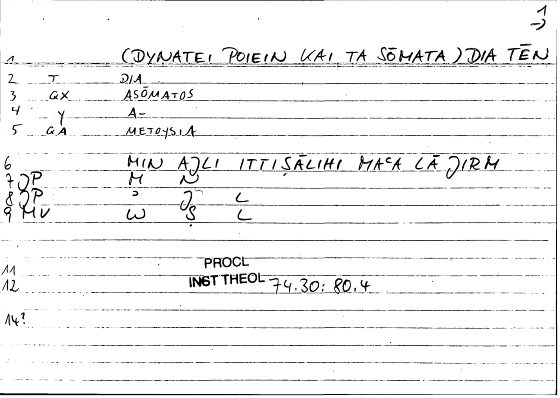 1
→
1 (DYNATEI POIEIN KAI TA SŌMATA) DIA TĒN
2 T DIA
3 QX ASŌMATOS
4 Y A-
5 QA METOYSIA
6 MIN AJLI ITTIṢĀLIHI MAᶜA LĀ JIRM
7 JP M N
8 JP ʾ J L
9 MV W Ṣ L
11 PROCL
12 INST THEOL 74.30: 80.4
14?